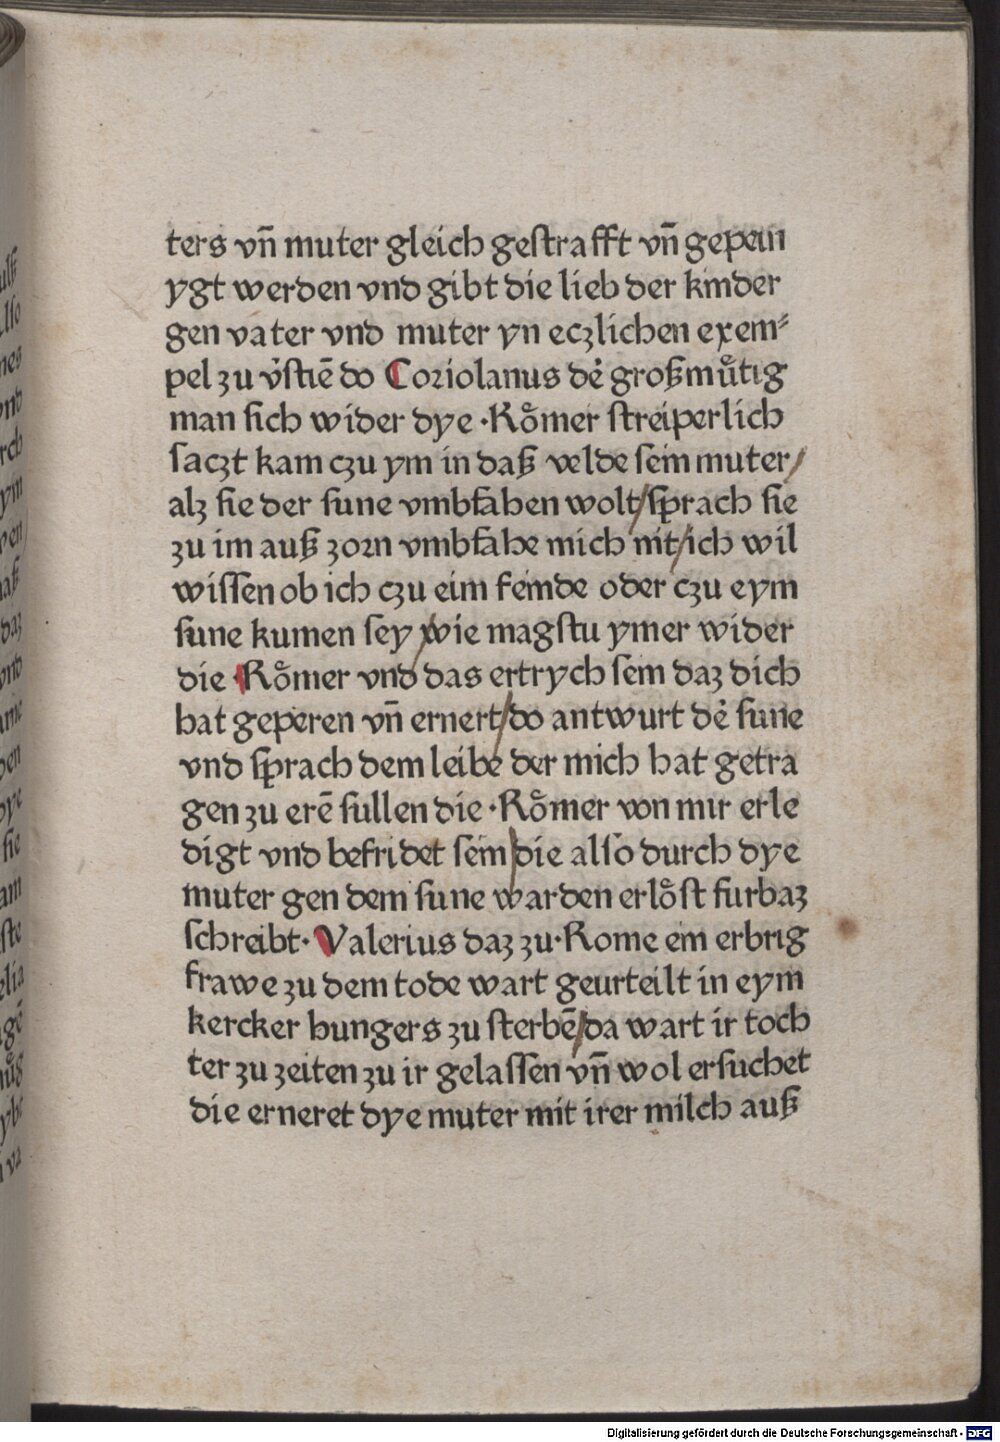 ters vñ muter gleich gestrafft vñ gepein
ygt werden vnd gibt die lieb der kinder
gen vater vnd muter yn eczlichen exem⸗
pel zu v̉stiē do Coriolanus dẻ großmůtig
man sich wider dye ·Rỏmer streiperlich
saczt kam czu ym in daß velde sein muter/
alz sie der sune vmbfahen wolt/sprach sie
zu im auß zorn vmbfahe mich nit/ich wil
wissen ob ich czu eim feinde oder czu eym
sune kumen sey/wie magstu ymer wider
die ·Rỏmer vnd das ertrych sein daz dich
hat geperen vñ ernert/do antwurt dẻ sune
vnd sprach dem leibe der mich hat getra
gen zu erē sullen die ·Rỏmer von mir erle
digt vnd befridet sein/die also durch dye
muter gen dem sune warden erlỏst furbaz
schreibt· Valerius daz zu·Rome ein erbrig
frawe zu dem tode wart geurteilt in eym
kercker hungers zu sterbē/da wart ir toch
ter zu zeiten zu ir gelassen vñ wol ersuchet
die erneret dye muter mit irer milch auß
Digitalisierung gefördert durch die Deutsche Forschungsgemeinschaft - DFG